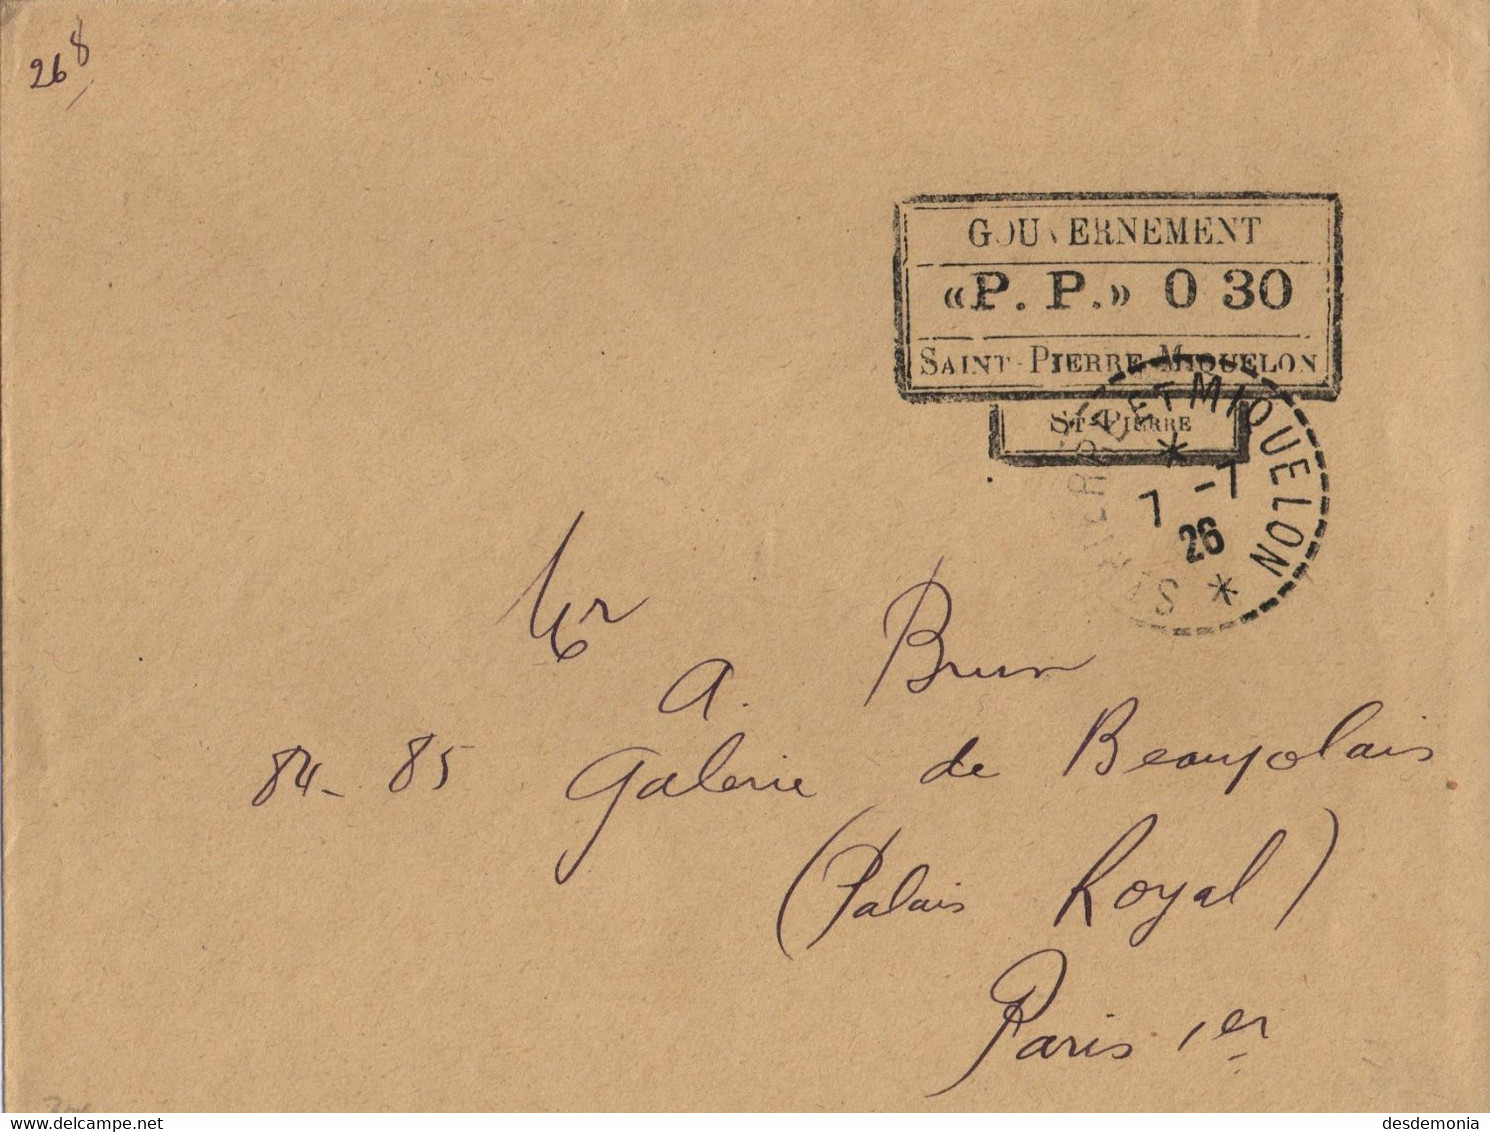 268
GOUVERNEMENT
«P. P.» 0 30
SAINT-PIERRE-MIQUELON
ST-PIERRE
ST PIERRE ET MIQUELON
7 -7
26
Mr
A. Brun
84-85 Galerie de Beaujolais
(Palais Royal)
Paris 1er
desdemonia